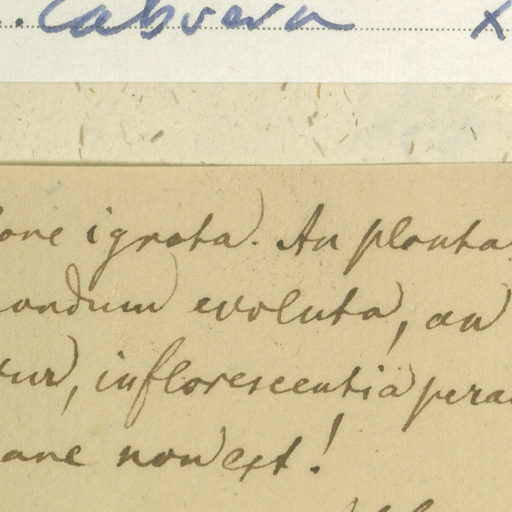 . Cabrera x
ione ignota. An planta
nondum evoluta, an
tur, inflorescentia pera
ane non est!